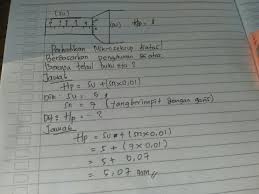 (su)
(sn) Hp = ?
Perhatikan Mikrosekrup diatas!
Berdasarkan pengukuran diatas
Berapa tebal buku itu ?
Jawab
Hp = su + (sn x 0,01)
Dik : su = 5
sn = 7 (yang berimpit dengan garis)
Dit : Hp = - ?
Jawab
Hp = su + (sn x 0,01)
= 5 + (7 x 0,01)
= 5 + 0,07
= 5,07 mm